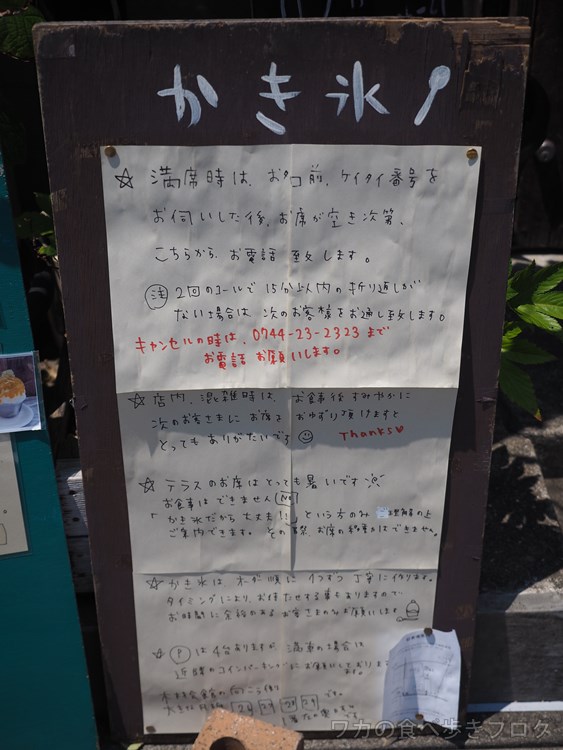 かき氷
☆ 満席時は、お名前、ケイタイ番号を
お伺いした後、お席が空き次第、
こちらから、お電話致します。
注 2回のコールで15分以内の折り返しが
ない場合は 次のお客様をお通し致します。
キャンセルの時は、0744-23-2323まで
お電話お願いします。
☆ 店内、混雑時は、お食事後すみやかに
次のお客さまに お席を おゆずり頂けますと
とってもありがたいです Thanks♥
☆ テラスのお席はとっても暑いです
お食事はできません NO
「かき氷だから大丈夫!!」という方のみ ご理解の上
ご案内できます。その際、お席の移動はできません。
☆ かき氷は、オーダー順に 1つずつ丁寧に作ります。
タイミングにより、お待たせする事もありますので
お時間に余裕のあるお客さまのみお願いします
☆ P は4台ありますが 満車の場合は
近隣のコインパーキングにお願いしております
24 28 29 です。
ワカの食べ歩きブログ